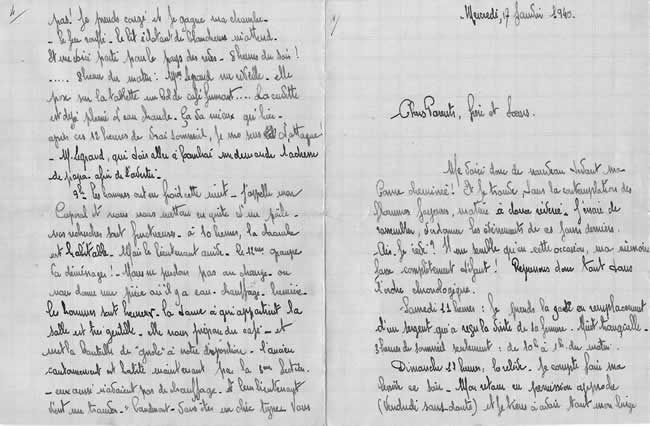 4
pas! Je prends congé et je gagne ma chambre -
- le feu ronfle. le lit éclatant de blancheur m'attend.
Et me voici parti pour le pays des rêves - 8 heures du soir !
..... 8 heures du matin : Mme Legrand me réveille - elle
pose sur la tablette un bol de café fumant.... La cuvette
est déjà pleine d'eau chaude. Ça va mieux qu'hier -
après ces 12 heures de vrai sommeil, je me sens d'attaque!
- Mr Legrand, qui doit aller à Cambrai me demande l'adresse
de papa afin de l'avertir -
9h - Les hommes ont eu froid cette nuit - J'appelle mon
Caporal et nous nous mettons en quête d'un poêle -
nos recherches sont fructueuses - à 10 heures, la chambre
est habitable. Mais le lieutenant arrive - le 12ème groupe
Ça déménage ! - Nous ne perdons pas au change - on
nous donne une pièce où il y a eau - chauffage - lumière
les hommes sont heureux - la dame à qui appartient la
salle est très gentille - elle nous prépare du café - et
met la bouteille de "gnole" à notre disposition - l'ancien
cantonnement est habité maintenant par la 3ème Section.
- eux aussi n'avaient pas de chauffage - et leur lieutenant
vient me trouver - Vous êtes un chic type, vous
1/
Mercredi, 17 Janvier 1940.
Chers Parents, frère et soeurs.
Me voici donc de nouveau devant ma
bonne cheminée ! Et je trouve, dans la contemplation des
flammes joyeuses, matière à douce rêverie - J'essaie de
rassembler, d'ordonner les évènements de ces jours derniers.
- Ai-je rêvé ? Il me semble qu'en cette occasion, ma mémoire
fasse complètement défaut ! Reprenons donc tout dans
l'ordre chronologique.
Samedi 11 heures : Je prends la garde en remplacement
d'un sergent qui a reçu la visite de sa femme. Nuit tranquille -
3 heures de sommeil seulement : de 10h à 1h du matin.
Dimanche 11 heures, la relève. Je compte faire ma
lessive ce soir. Mon retour en permission approche
(Vendredi sans doute) et je tiens à avoir tout mon linge